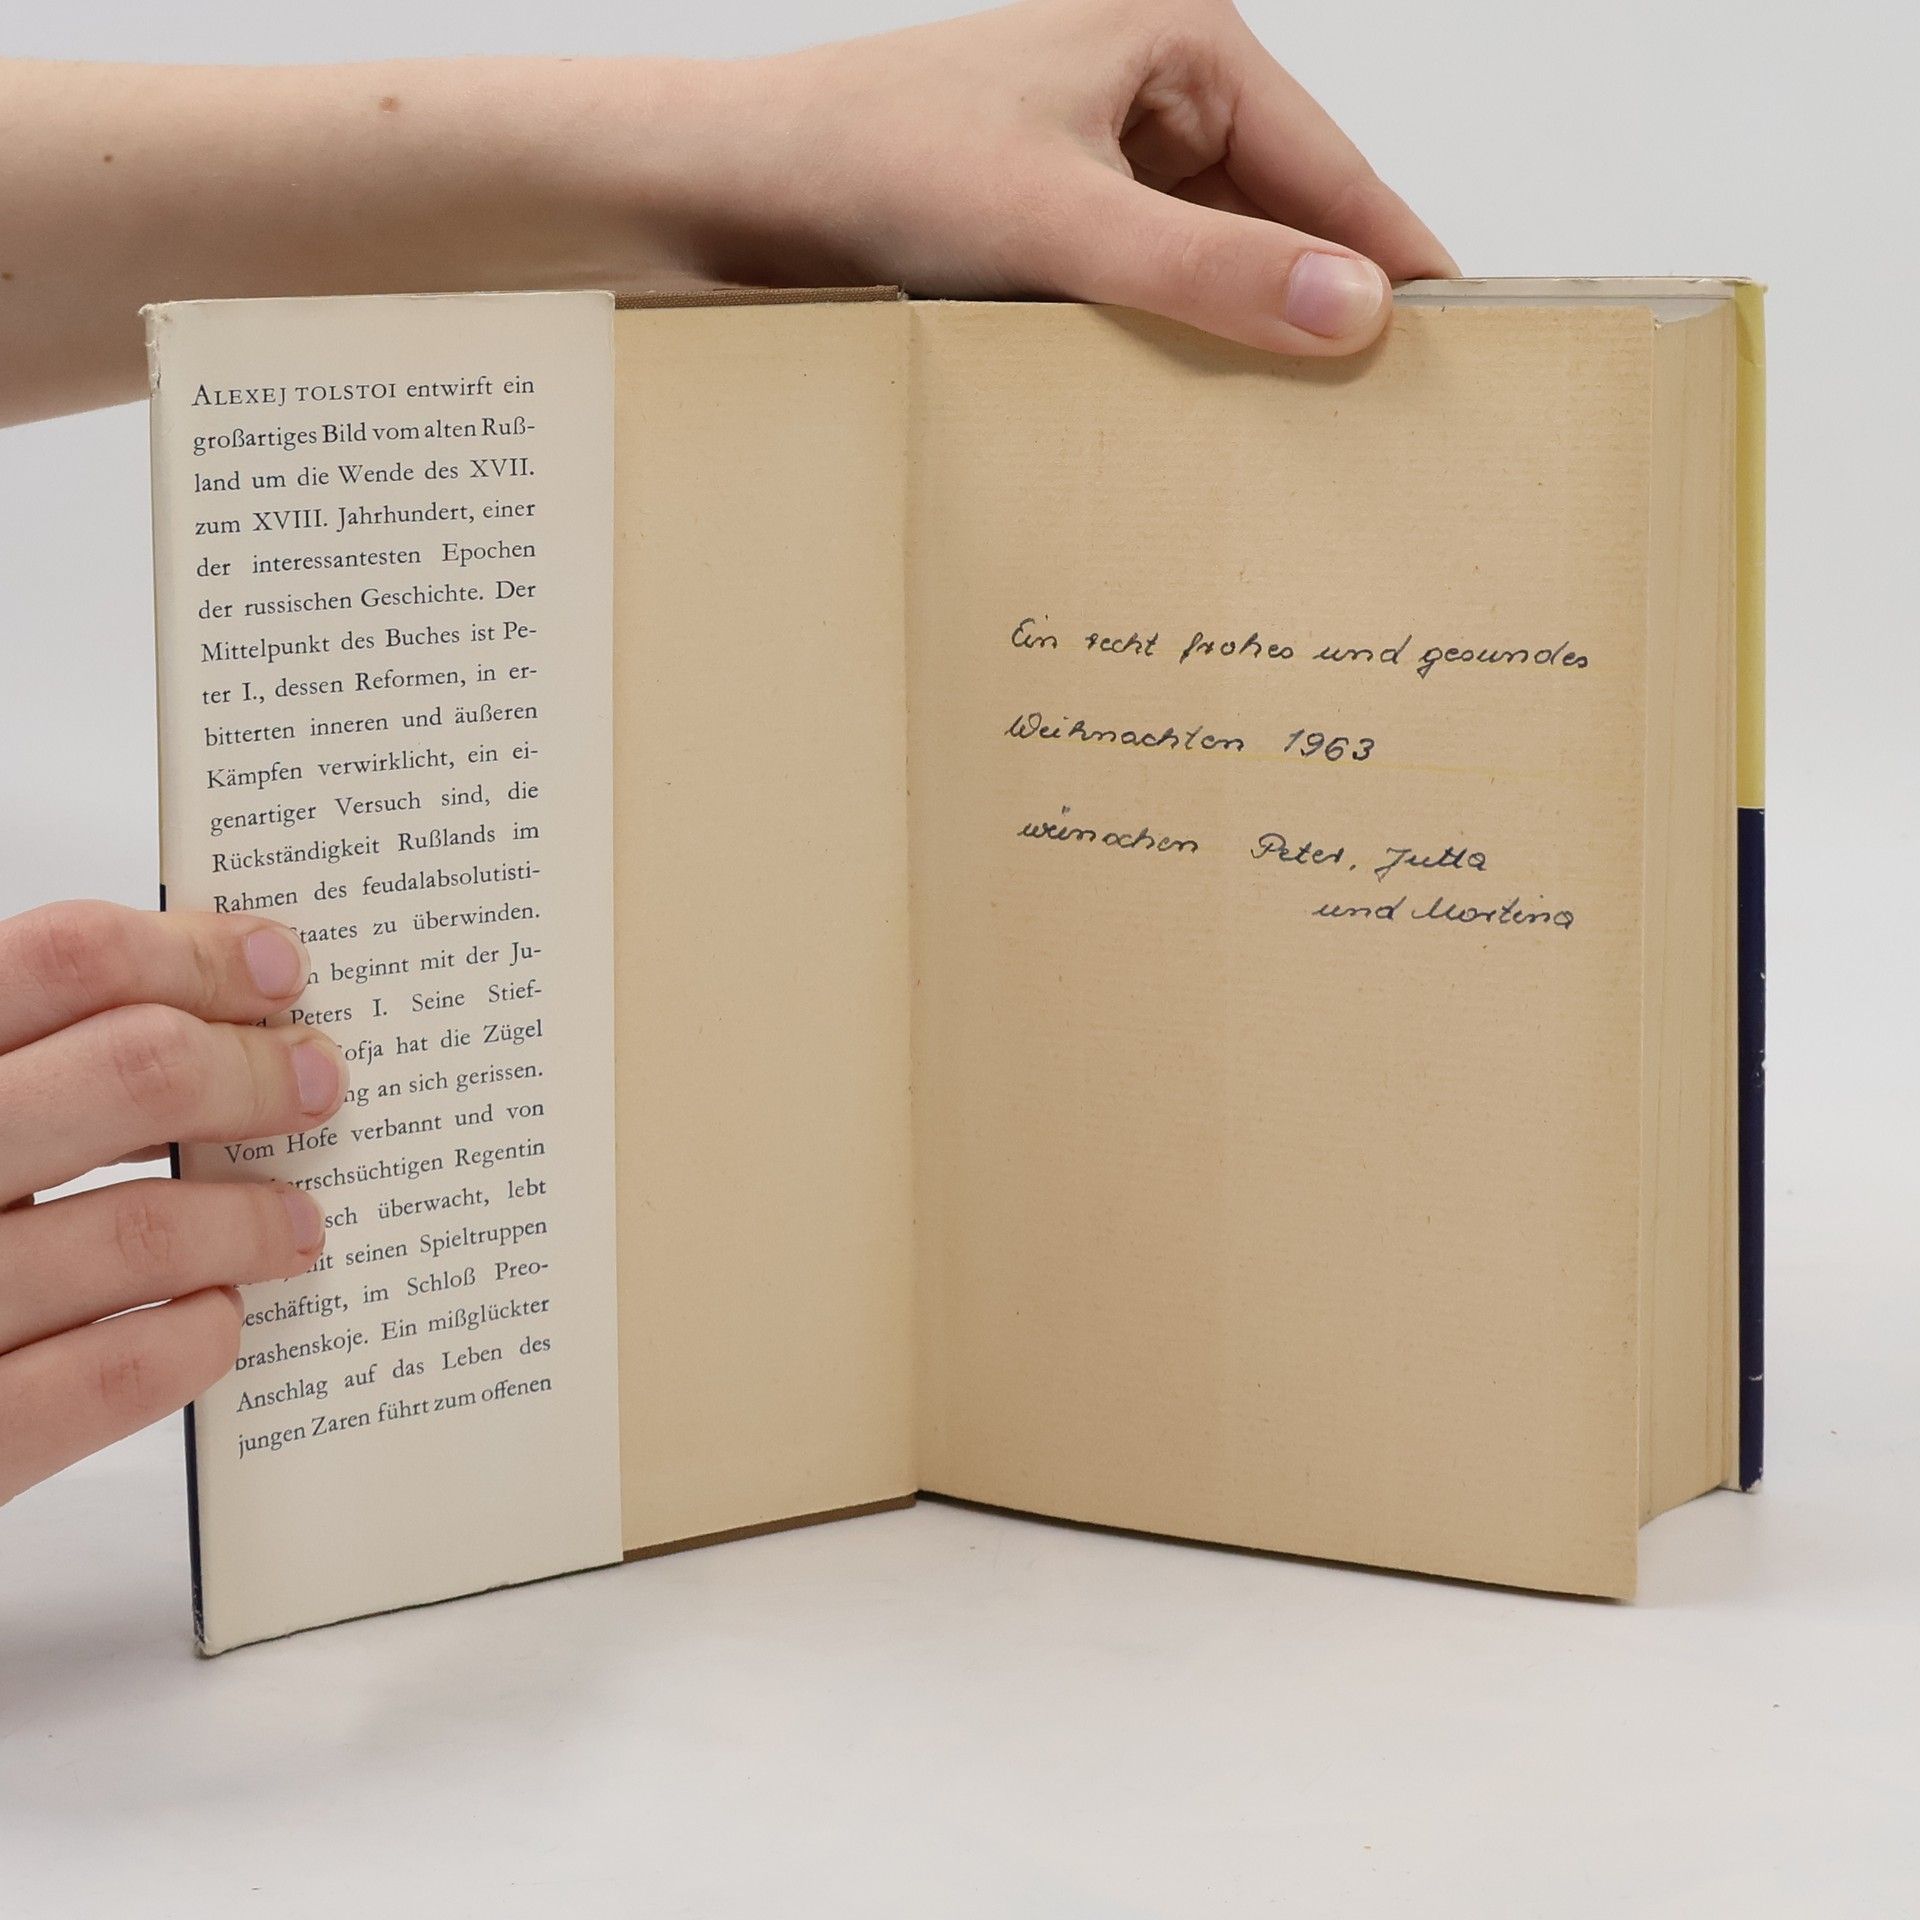 ALEXEJ TOLSTOI entwirft ein
großartiges Bild vom alten Ruß-
land um die Wende des XVII.
zum XVIII. Jahrhundert, einer
der interessantesten Epochen
der russischen Geschichte. Der
Mittelpunkt des Buches ist Pe-
ter I., dessen Reformen, in er-
bitterten inneren und äußeren
Kämpfen verwirklicht, ein ei-
genartiger Versuch sind, die
Rückständigkeit Rußlands im
Rahmen des feudalabsolutisti-
zu überwinden.
beginnt mit der Ju-
Peters I. Seine Stief-
hat die Zügel
an sich gerissen.
Vom Hofe verbannt und von
Regentin
überwacht, lebt
seinen Spieltruppen
im Schloß Preo-
brashenskoje. Ein mißglückter
Anschlag auf das Leben des
jungen Zaren führt zum offenen
Ein recht frohes und gesundes
Weihnachten 1963
wünschen Peter, Jutta
und Martina